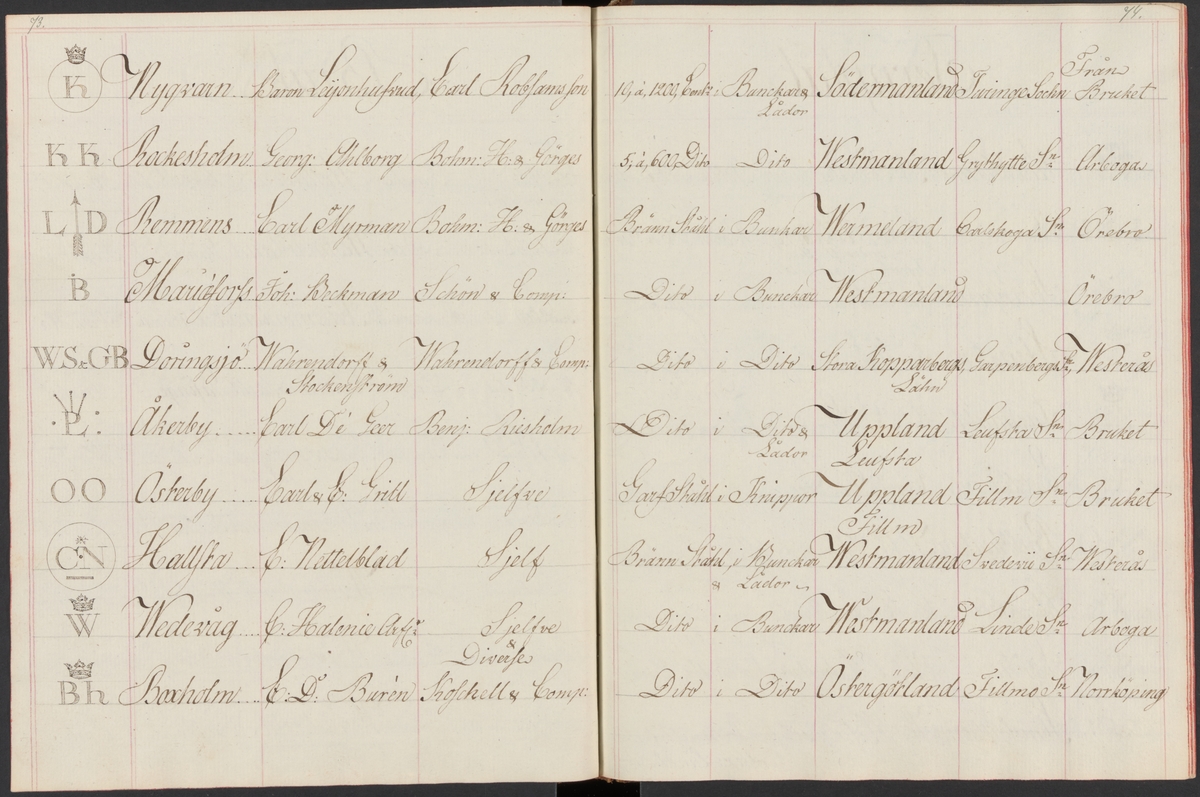 73.
74.
Från
K Nygvarn Baron Leijonhufvud, Carl Robsamsson 10, à, 1200, Centr i Bunckar & Södermanland Turinge Sochn Bruket
Lådor
K K Rockesholm Georg: Ahlborg Bohm: H: & Görges 5, à, 600, Dito Dito Westmanland Grythytte Sn Arboga
L D Remmens Carl Myrman Bohm: H: & Görges Bränn Ståhl i Bunkar Wermeland Carlskoga Sn Örebro
B Mariæforss Joh: Beckman Schön & Comp: Dito i Bunckar Westmanland Örebro
W.S. & GB Doringsjö Wahrendorff & Wahrendorff & Comp: Dito i Dito Stora Kopparbergs Garpenbergs Sn Westerås
Stockenström Låhn
L Åkerby Carl De Geer Benj: Riesholm Dito i Dito & Uppland Leufsta Sn Bruket
Lådor Leufsta
O O Österby Carl & C: Grill Sjelfve Garf Ståhl i Knippor Uppland Fillm Sn Bruket
Fillm
C N Hallsta C: Nettelblad Sjelf Bränn Ståhl, i Bunckar Westmanland Svedevi Sn Westerås
& Lådor
W Wedevåg C: Halenie Arf: Sjelfve Dito i Bunckar Westmanland Linde Sn Arboga
&
Diverse
B h Boxholm C: D: Burén Koschell & Comp: Dito i Dito Östergötland Fillmo Sn Norrköping